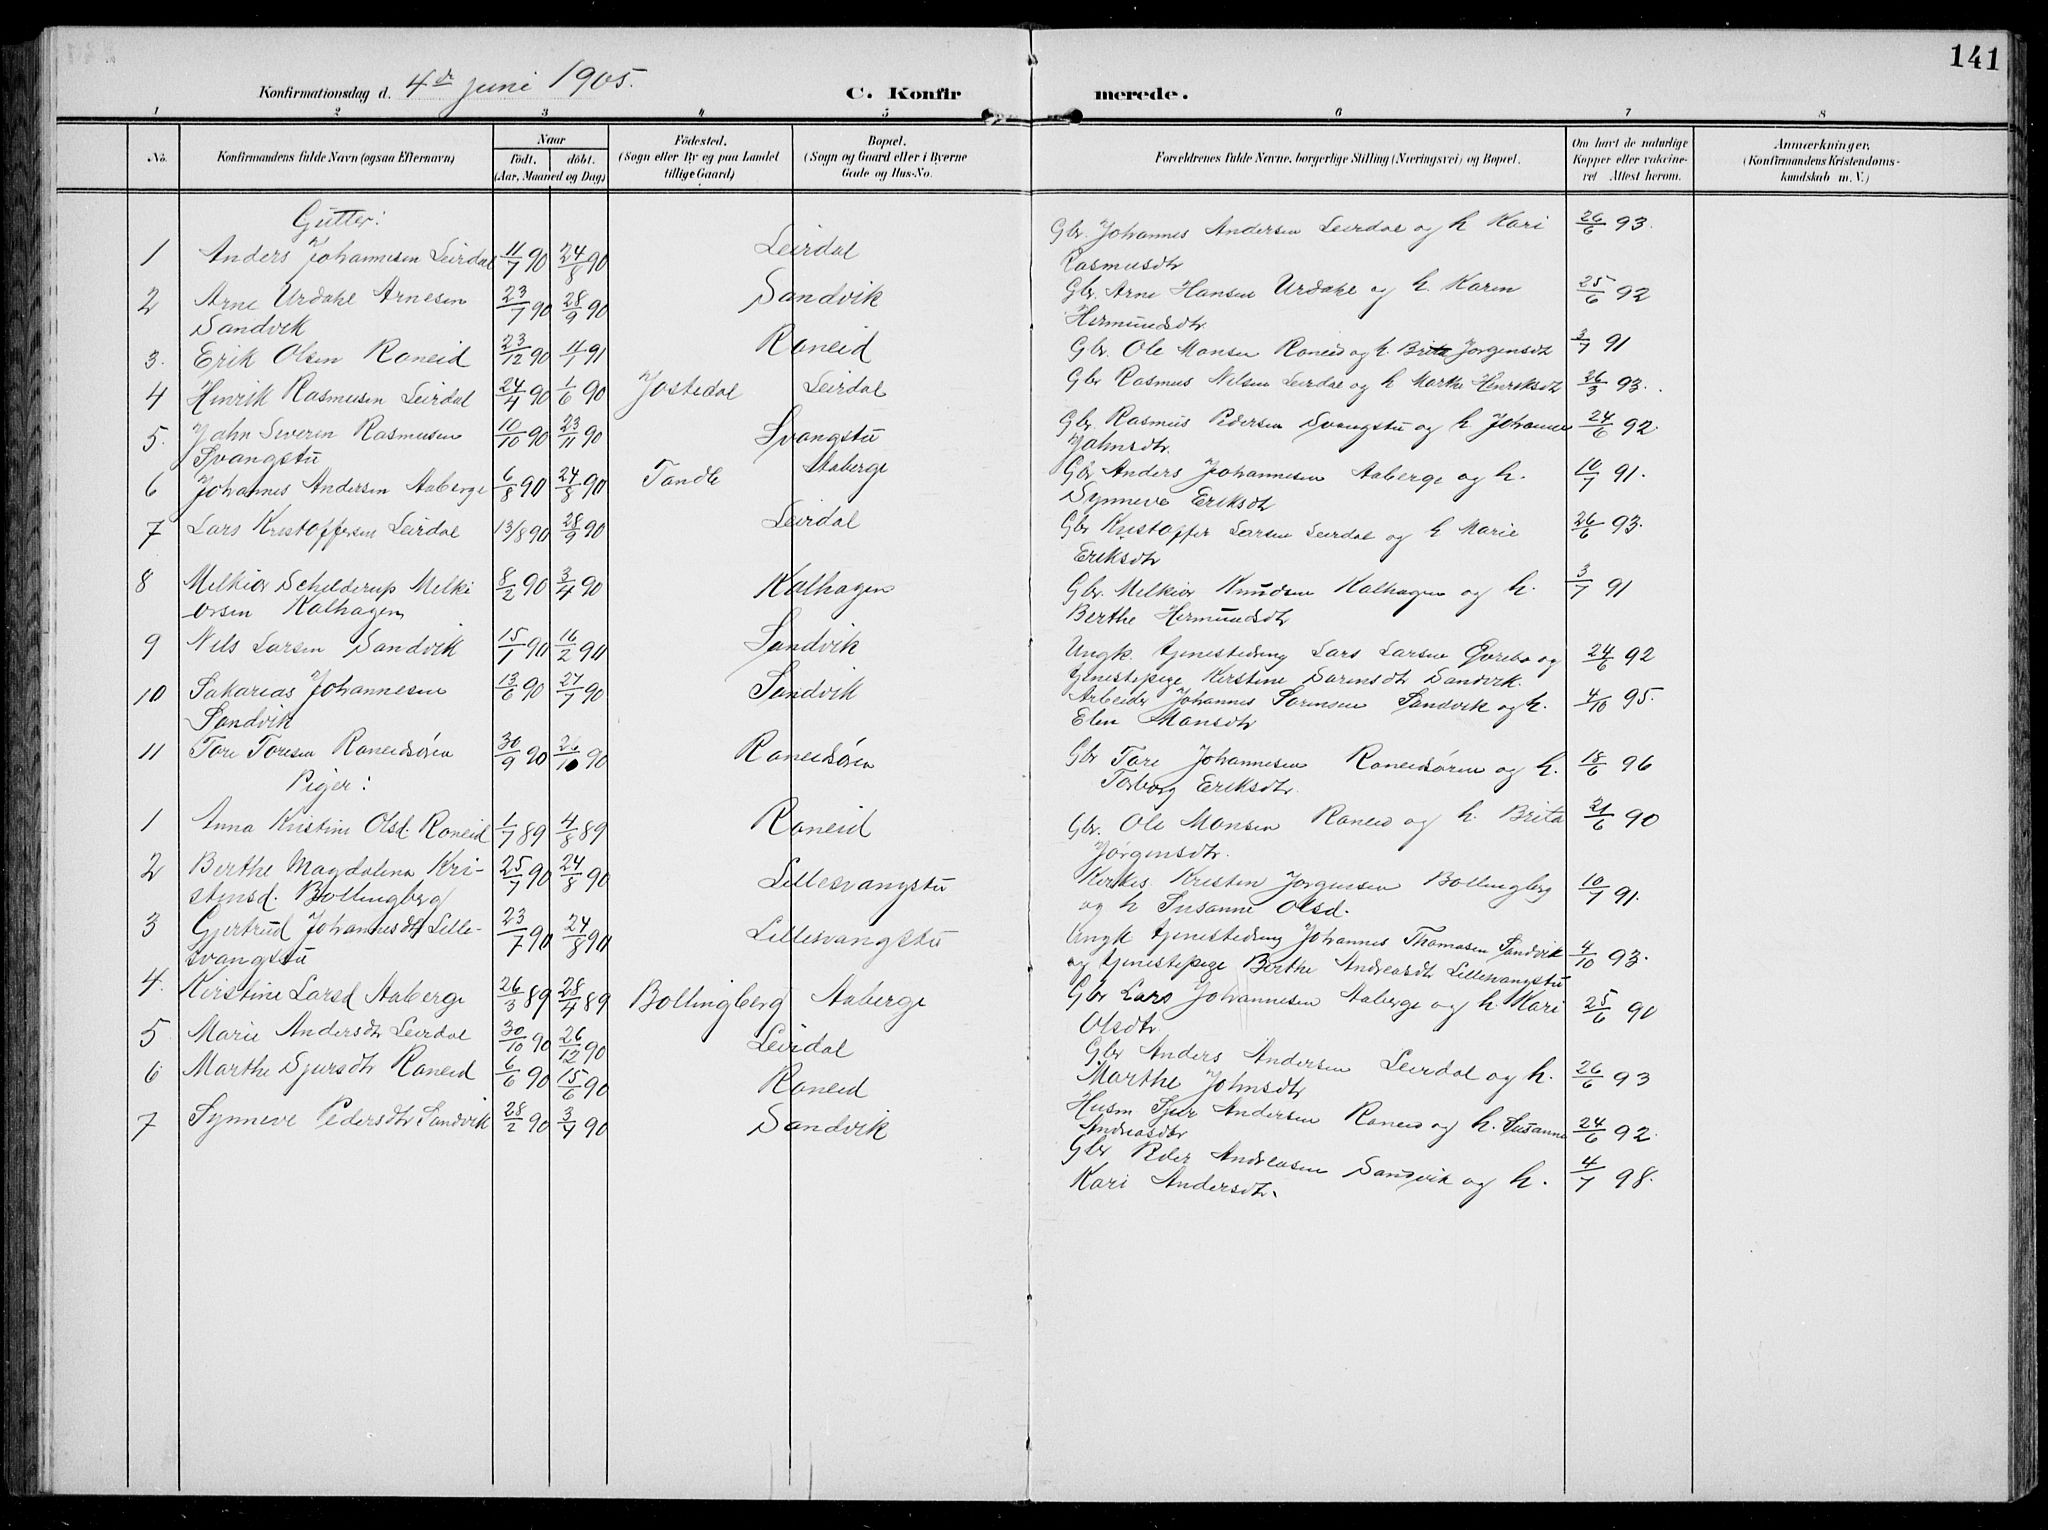 141
Konfirmationsdag d. 4de juni 1905. C. Konfirmerede.
1 2 3 4 5 6 7 8
No. Konfirmandens fulde Navn (ogsaa Efternavn) Naar födt. döbt. (Aar, Maaned og Dag) Födested. (Sogn eller By og paa Landet tillige Gaard) Bopæl. (Sogn og Gaard eller i Byerne Gade og Hus-No. Forældrenes fulde Navne, borgerlige Stilling (Næringsvei) og Bopæl. Om havt de naturlige Kopper eller vakcineret Attest herom. Anmærkninger. (Konfirmandens Kristendomskundskab m. V.)
Gutter:
1 Anders Johannesen Leirdal 11/7 90 24/8 90 Leirdal Gbr. Johannes Andersen Leirdal og h Kari 26/6 93.
Rasmusdtr
2 Arne Urdahl Arnesen 23/7 90 28/9 90 Sandvik Gbr. Arne Hansen Urdahl og h. Karen 25/6 92
Sandvik Hermundsdtr
3. Erik Olsen Roneid 23/12 90 11/1 91 Roneid Gbr. Ole Monsen Roneid og h. Brita Jørgensdtr 3/7 91
4 Henrik Rasmusen Leirdal 24/4 90 1/6 90 Jostedal Leirdal Gbr Rasmus Nilsen Leirdal og h Marthe Henriksdtr 26/3 93.
5. John Severin Rasmusen 10/10 90 23/11 90 Svangstu Gbr. Rasmus Pedersen Svangstu og h. Johanne 24/6 92.
Svangstu Johnsdtr
6 Johannes Andersen Aaberge 6/8 90 24/8 90 Tandle Aaberge Gbr Anders Johannesen Aaberge og h. 10/7 91.
Synneve Eriksdtr
7 Lars Kristoffersen Leirdal 13/8 90 28/9 90 Leirdal Gbr Kristoffer Larsen Leirdal og h Marie 26/6 93.
Eriksdtr
8 Melkior Schelderup Melki 8/2 90 3/4 90 Kalhagen Gbr. Melkior Knudsen Kalhagen og h. 3/7 91
orsen Kalhagen Berthe Hermundsdtr
9 Nils Larsen Sandvik 15/1 90 16/2 90 Sandvik Ungk. tjenestedreng Lars Larsen Øvrebø og 24/6 92
tjenestepige Kirstine Sørensdtr Sandvik.
10 Sakarias Johannesen 13/6 90 27/7 90 Sandvik Arbeider Johannes Sørensen Sandvik og h. 4/10 95.
Sandvik Elen Monsdtr
11 Tore Toresen Roneidsøren 30/9 90 26/10 90 Roneidsøren Gbr Tore Johannesen Roneidsøren og h. 18/6 96
Torborg Eriksdtr.
Piger:
1 Anna Kristine Olsd. Roneid 1/7 89 4/8 89 Roneid Gbr. Ole Monsen Roneid og h. Brita 21/6 90
Jørgensdtr.
2 Berthe Magdalena Kri- 25/7 90 24/8 90 Lillesvangstu Kirkes. Kristen Jørgensen Bollingberg 10/7 91.
stensd. Bollingberg og h Susanne Olsd.
3 Gjertrud Johannesdtr Lille- 23/7 90 24/8 90 Lillesvangstu Ungk tjenestedreng Johannes Thomasen Sandvik 4/10 93.
svangstu og tjenestepige Berthe Andreasdtr Lillesvangstu
4. Kirstine Larsd Aaberge 26/3 89 28/4 89 Bollingberg Aaberge Gbr Lars Johannesen Aaberge og h. Kari 25/6 90
Olsdtr.
5 Marie Andersdtr Leirdal 30/10 90 26/12 90 Leirdal Gbr Anders Andersen Leirdal og h. 26/6 93
Marthe Johnsdtr
6 Marthe Sjursdtr Roneid 6/6 90 15/6 90 Roneid Husm Sjur Andersen Roneid og h. Susanne 24/6 92.
Andreasdtr
7 Synneve Pedersdtr Sandvik 28/2 90 3/4 90 Sandvik Gbr Peder Andreasen Sandvik og h. 4/7 98.
Kari Andersdtr.